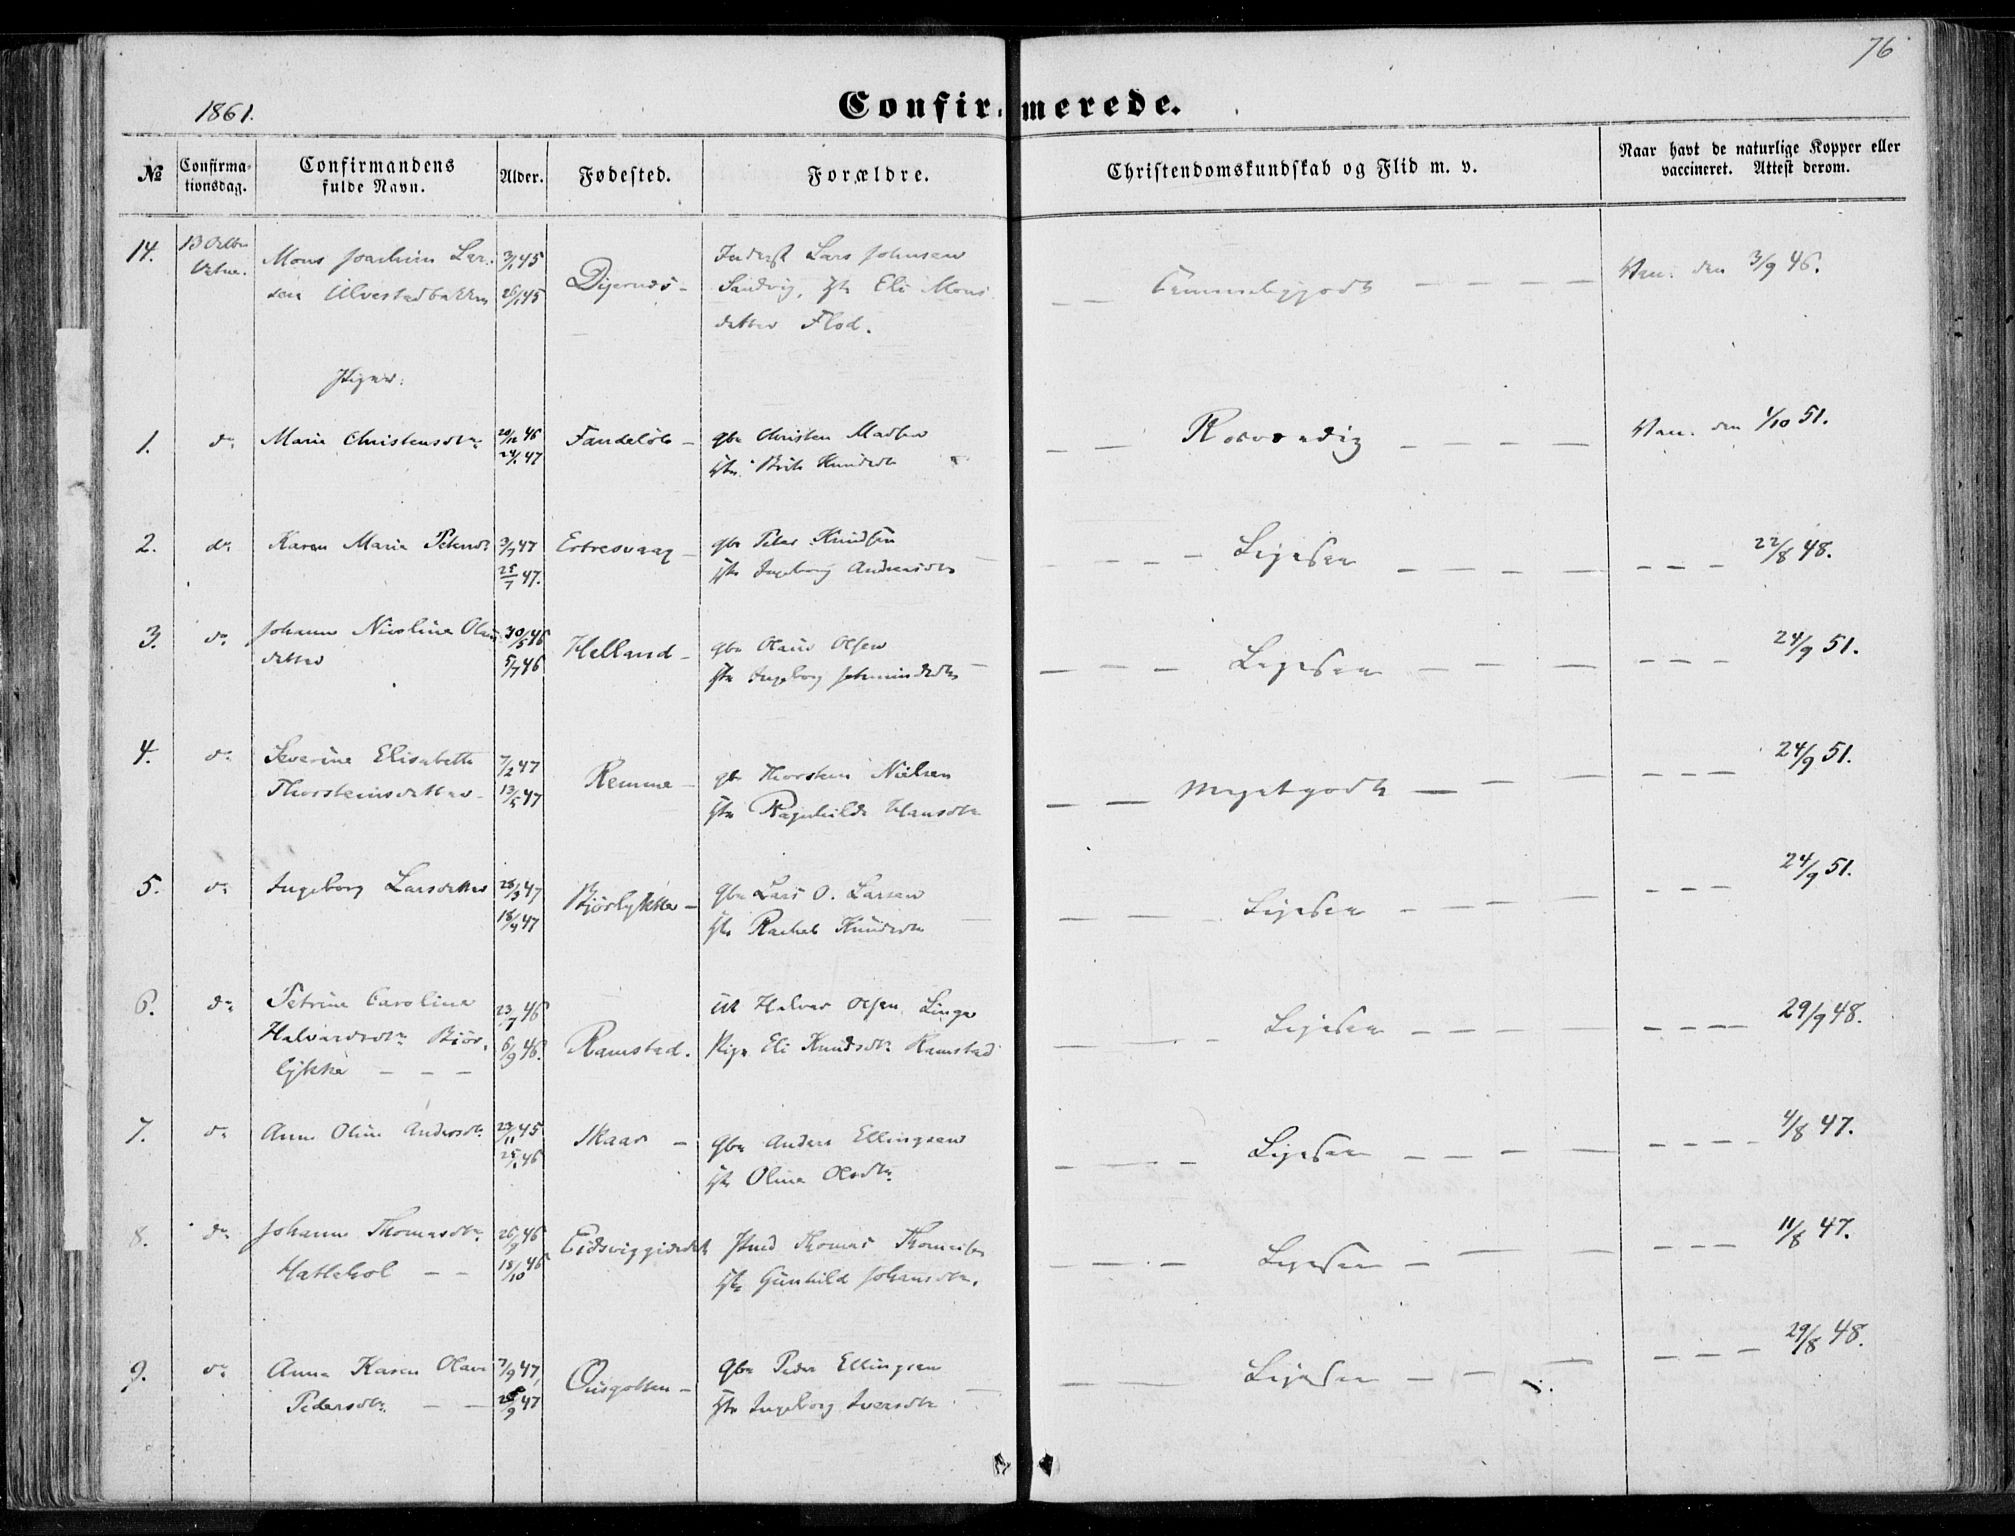 76
1861.
Confirmerede.
№
Confirma-
tionsdag.
Confirmandens
fulde Navn.
Alder.
Fødested.
Forældre.
Christendomskundskab og Flid m. v.
Naar havt de naturlige Kopper eller
vaccineret. Attest derom.
14.
13 Octbr
Vatne.
Mons Joachim Lar-
sen Ulvestadbakken
3/1 45
26/1 45
Digernes -
Inderst Lars Johnsen
Sandvig, Hst Eli Mons
datter Flod.
Temmeliggodt
Vac. den 3/9 46.
Piger:
1.
do
Marie Christensdtr
20/12 46
24/1 47
Fandeløb -
gbr Christen Madsen
Hst Brit Knudsdtr
Roesværdig
Vac. den 1/10 51.
2.
do
Karen Marie Petersdr
3/7 47
25/7 47.
Ertresvaag -
gbr Peter Knudsen
Hst Ingeborg Andreasdtr
Ligesaa
22/8 48.
3.
do
Johanne Nicoline Olaus
datter
30/5 46
5/7 46
Helland -
gbr Olaus Olsen
Hst Ingeborg
Ligesaa
24/9 51.
4.
do
Severine Elisabeth
Thorsteinsdatter
7/2 47
13/5 47
Remme -
gbr Thorstein Nielsen
Hst Ragnhilde Hansdtr
Megetgodt
24/9 51.
5.
do
Ingeborg Larsdatter
28/3 47
18/4 47
Bjørlykke -
gbr Lars O. Larsen
Hst Rachel Knudsdtr
Ligesaa
24/9 51.
6.
do
Petrine Caroline
Halvardsdtr Biør-
lykke
23/7 46
6/9 46.
Ramstad.
Halvar Olsen Linge
Pige Eli Knudsdtr Ramstad
Ligesaa
29/9 48.
7.
do
Anne Oline Andersdtr
23/11 45
25/1 46
Skaar -
gbr Anders Ellingsen
Hst Oline Olsdtr
Ligesaa
4/8 47.
8.
do
Johanne Thomasdtr
Hattehol
26/9 46
18/10 46
Eidsviggjerdet
Hmd Thomas Thomesen
Hst Gunhild Johansdtr.
Ligesaa
11/8 47.
9.
do
Anna Karen Olave
Pedersdtr
7/9 47,
26/9 47
Ousgotten -
Gbr Peder Ellingsen
Hst Ingeborg Iversdtr
Ligesaa
29/8 48.